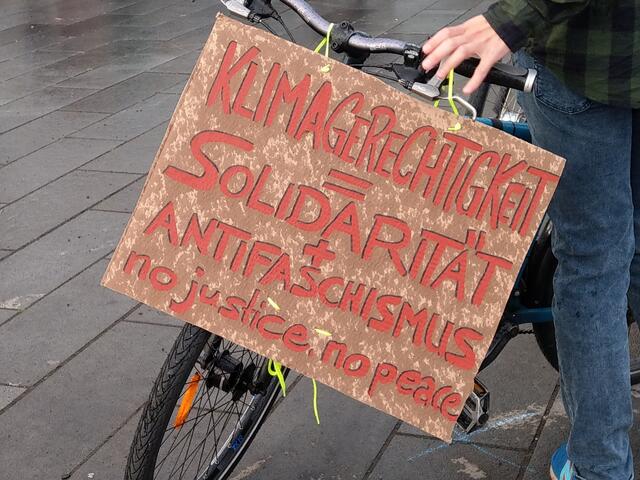 KLIMAGERECHTIGKEIT
=
SOLIDARITÄT
+
ANTIFASCHISMUS
no justice, no peace